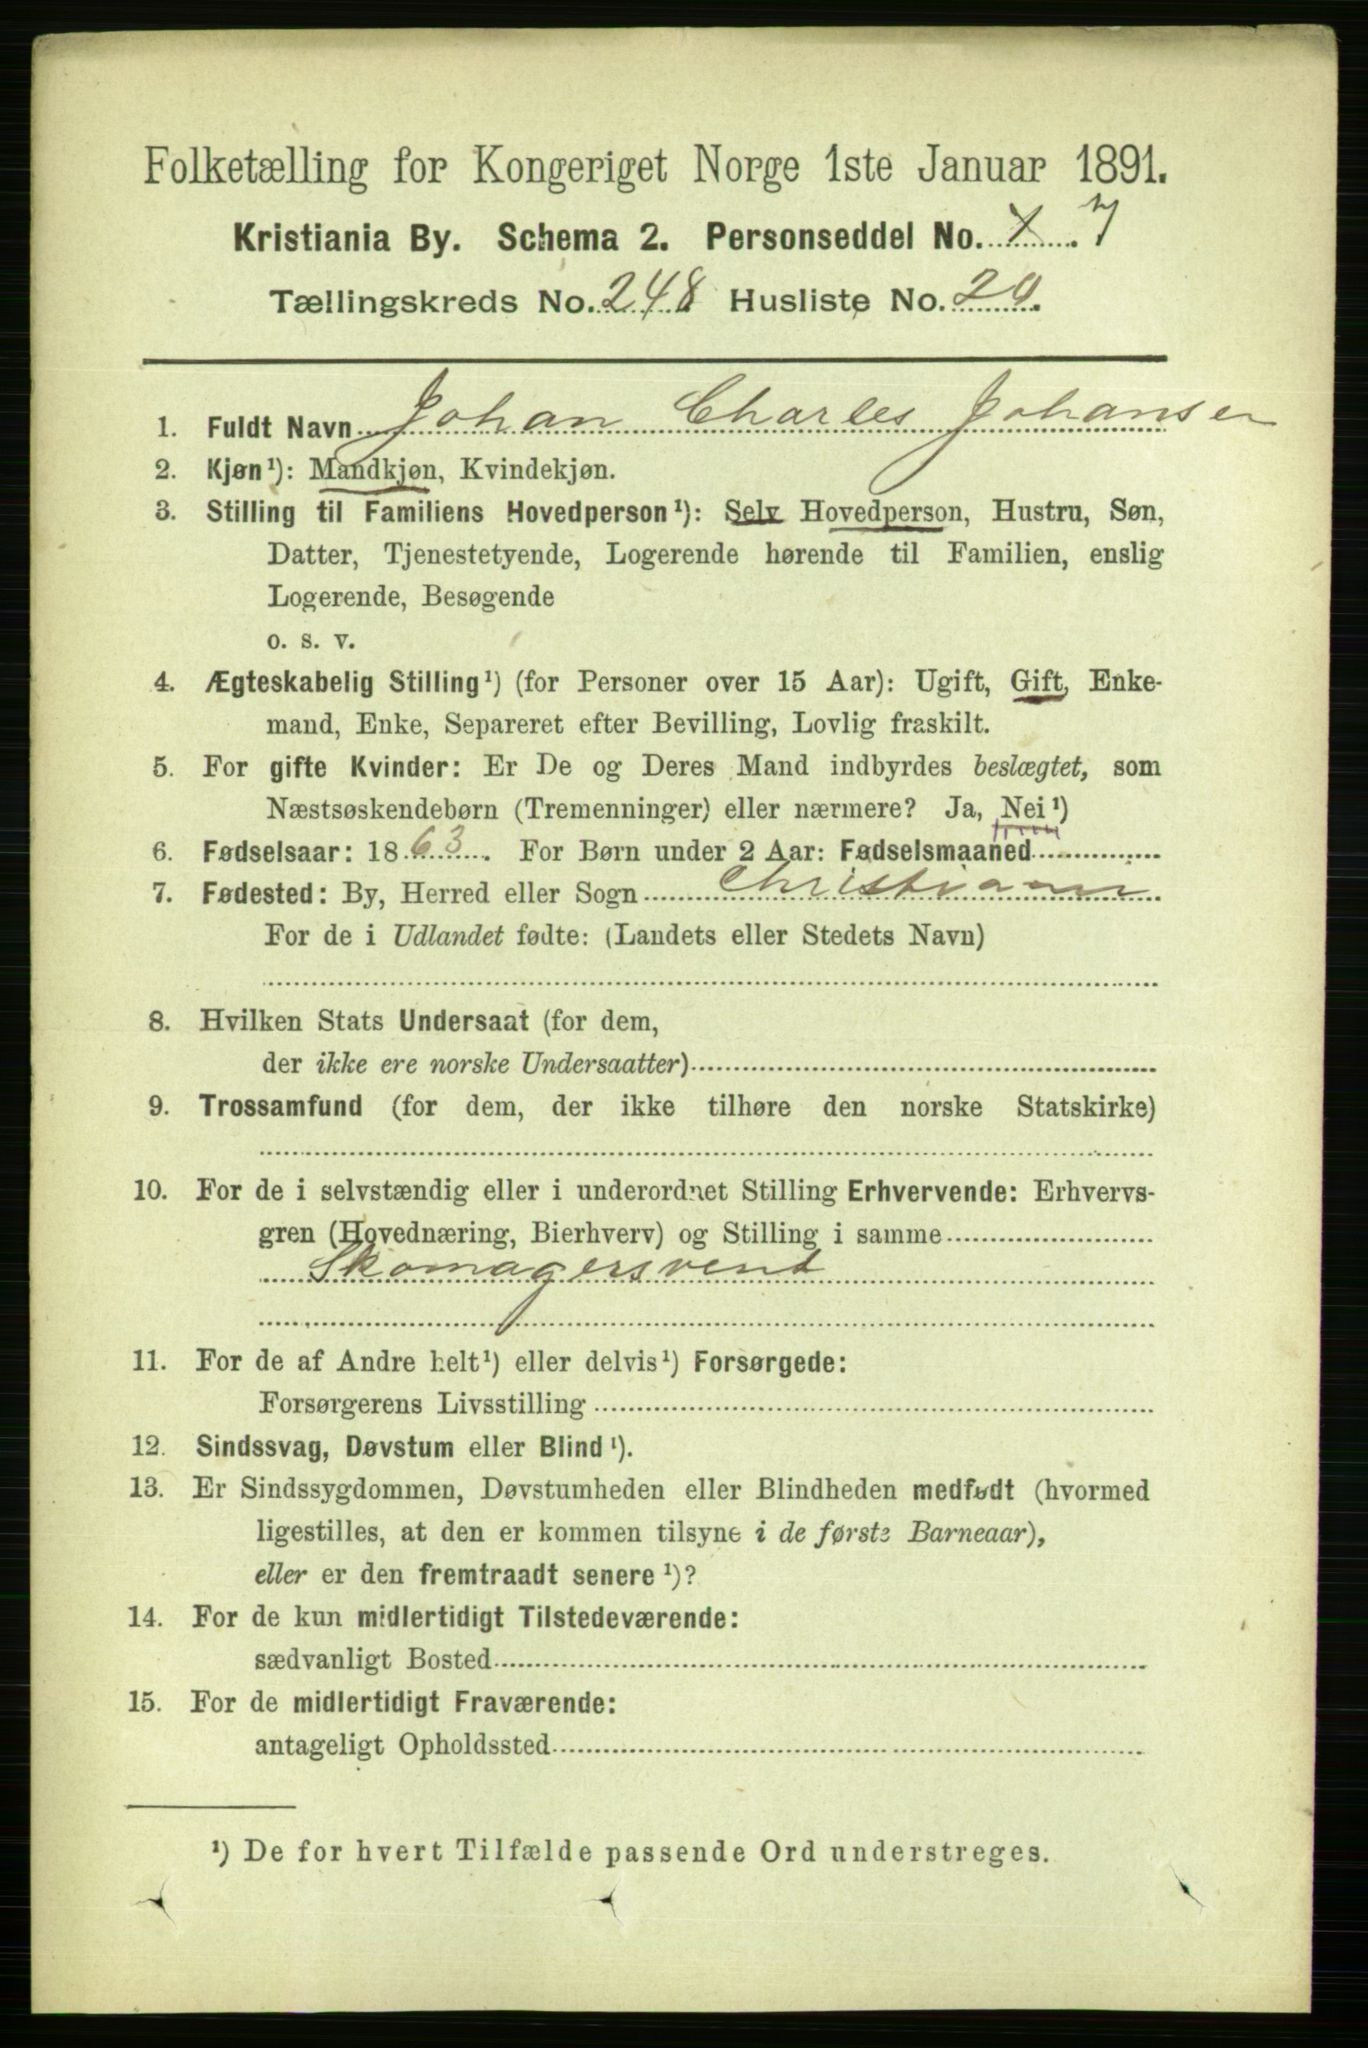 Folketælling for Kongeriget Norge 1ste Januar 1891.
Kristiania By. Schema 2. Personseddel No. 7
Tællingskreds No. 248 Husliste No. 20.
1. Fuldt Navn Johan Charles Johansen
2. Kjøn¹): Mandkjøn, Kvindekjøn.
3. Stilling til Familiens Hovedperson¹): Selv Hovedperson, Hustru, Søn,
Datter, Tjenestetyende, Logerende hørende til Familien, enslig
Logerende, Besøgende
o. s. v.
4. Ægteskabelig Stilling¹) (for Personer over 15 Aar): Ugift, Gift, Enke-
mand, Enke, Separeret efter Bevilling, Lovlig fraskilt.
5. For gifte Kvinder: Er De og Deres Mand indbyrdes beslægtet, som
Næstsøskendebørn (Tremenninger) eller nærmere? Ja, Nei¹)
6. Fødselsaar: 1863. For Børn under 2 Aar: Fødselsmaaned
7. Fødested: By, Herred eller Sogn Christiania
For de i Udlandet fødte: (Landets eller Stedets Navn)
8. Hvilken Stats Undersaat (for dem,
der ikke ere norske Undersaatter)
9. Trossamfund (for dem, der ikke tilhøre den norske Statskirke)
10. For de i selvstændig eller i underordnet Stilling Erhvervende: Erhvervs-
gren (Hovednæring, Bierhverv) og Stilling i samme
Skomagersvend
11. For de af Andre helt¹) eller delvis¹) Forsørgede:
Forsørgerens Livsstilling
12. Sindssvag, Døvstum eller Blind¹).
13. Er Sindssygdommen, Døvstumheden eller Blindheden medfødt (hvormed
ligestilles, at den er kommen tilsyne i de første Barneaar),
eller er den fremtraadt senere¹)?
14. For de kun midlertidigt Tilstedeværende:
sædvanligt Bosted
15. For de midlertidigt Fraværende:
antageligt Opholdssted
¹) De for hvert Tilfælde passende Ord understreges.